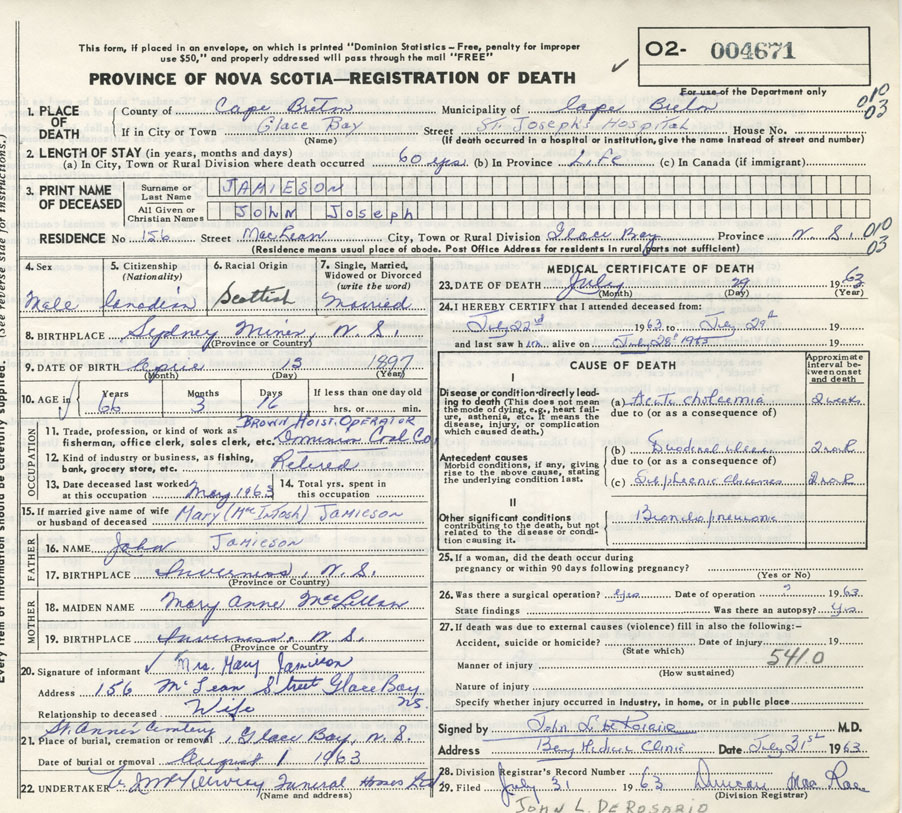 This form, if placed in an envelope, on which is printed "Dominion Statistics - Free, penalty for improper
use $50," and properly addressed will pass through the mail "FREE"
O2- 004671
For use of the Department only
PROVINCE OF NOVA SCOTIA—REGISTRATION OF DEATH
010
03
1. PLACE OF DEATH
County of Cape Breton Municipality of Cape Breton
If in City or Town Glace Bay Street St. Joseph's Hospital House No.
(Name) (If death occurred in a hospital or institution, give the name instead of street and number)
2. LENGTH OF STAY (in years, months and days)
(a) In City, Town or Rural Division where death occurred 60 yrs. (b) In Province Life (c) In Canada (if immigrant)
3. PRINT NAME OF DECEASED
Surname or Last Name JAMIESON
All Given or Christian Names JOHN Joseph
RESIDENCE No 156 Street MacLean City, Town or Rural Division Glace Bay Province N.S.
010
03
(Residence means usual place of abode. Post Office Address for residents in rural parts not sufficient)
4. Sex Male
5. Citizenship (Nationality) Canadian
6. Racial Origin Scottish
7. Single, Married, Widowed or Divorced (write the word) Married
8. BIRTHPLACE Sydney Mines, N.S.
(Province or Country)
9. DATE OF BIRTH April 13 1897
(Month) (Day) (Year)
10. AGE in Years 66 Months 3 Days 16 If less than one day old hrs. or min.
OCCUPATION
11. Trade, profession, or kind of work as fisherman, office clerk, sales clerk, etc. BROWN HOIST. OPERATOR Dominion Coal Co
12. Kind of industry or business, as fishing, bank, grocery store, etc. Retired
13. Date deceased last worked at this occupation May 1963
14. Total yrs. spent in this occupation
15. If married give name of wife or husband of deceased Mary (McIntosh) Jamieson
FATHER
16. NAME John Jamieson
17. BIRTHPLACE Inverness, N.S.
(Province or Country)
MOTHER
18. MAIDEN NAME Mary Anne MacLellan
19. BIRTHPLACE Inverness, N.S.
(Province or Country
20. Signature of informant Mrs. Mary Jamieson
Address 156 McLean Street Glace Bay NS.
Relationship to deceased Wife
St. Anne's Cemetery
21. Place of burial, cremation or removal Glace Bay, N.S.
Date of burial or removal August 1 1963
22. UNDERTAKER Funeral Homes Ltd
(Name and address)
MEDICAL CERTIFICATE OF DEATH
23. DATE OF DEATH July 29 1963
(Month) (Day) (Year)
24. I HEREBY CERTIFY that I attended deceased from:
July 22nd 1963 to July 29th 19
and last saw him alive on July 28th 1963 19
CAUSE OF DEATH
Approximate interval between onset and death
I
Disease or condition directly leading to death (This does not mean the mode of dying, e.g., heart failure, asthenia, etc. It means the disease, injury, or complication which caused death.)
(a) 2 weeks
due to (or as a consequence of)
Antecedent causes
Morbid conditions, if any, giving rise to the above cause, stating the underlying condition last.
(b) Duodenal ulcer
due to (or as a consequence of)
(c) Subphrenic abscess
II
Other significant conditions contributing to the death, but not related to the disease or condition causing it.
Bronchopneumonia
25. If a woman, did the death occur during
pregnancy or within 90 days following pregnancy?
(Yes or No)
26. Was there a surgical operation? Yes Date of operation ? 1963
State findings Was there an autopsy? Yes
27. If death was due to external causes (violence) fill in also the following:-
Accident, suicide or homicide? Date of injury 19
(State which)
541.0
Manner of injury
(How sustained)
Nature of injury
Specify whether injury occurred in industry, in home, or in public place
Signed by John L. De Rosario M.D.
Address Medical Clinic Date July 31st 1963
28. Division Registrar's Record Number
29. Filed July 31 1963 Duncan MacRae
(Division Registrar)
JOHN L. DE ROSARIO
(See reverse side for instructions.)
Every item of information should be carefully supplied.